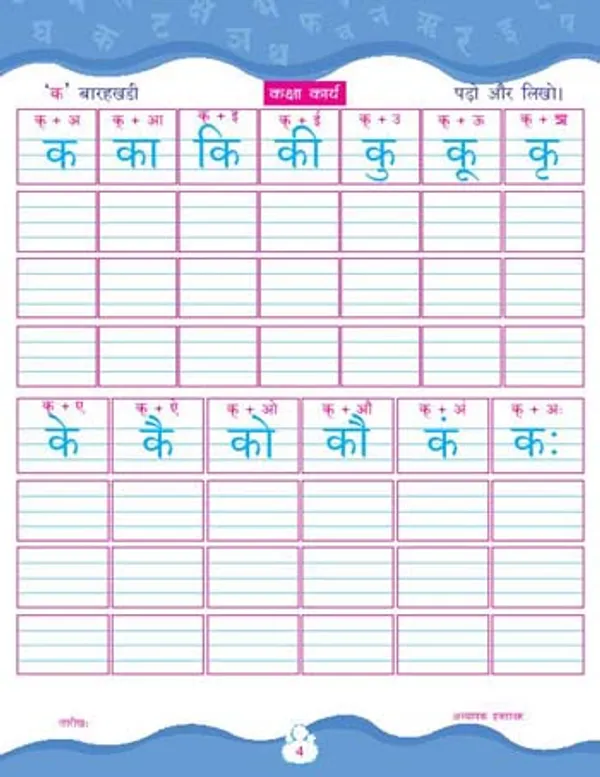 'क' बारहखडी कक्षा कार्य पढ़ो और लिखो।
क् + अ क् + आ क् + इ क् + ई क् + उ क् + ऊ क् + ऋ
क का कि की कु कू कृ
क् + ए क् + ऐ क् + ओ क् + औ क् + अं क् + अः
के कै को कौ कं कः
तारीखः अध्यापक हस्ताक्षर
4